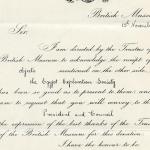 British Museum
13th November
Sir,
I am directed by the Trustees of
British Museum to acknowledge the receipt of
objects mentioned on the other side,
the Egypt Exploration Society
has been so good as to present to them: and
to request that you will convey to the
President and Council
the expression of the best thanks of the Trustees
of the British Museum for this donation.
I have the honour to be